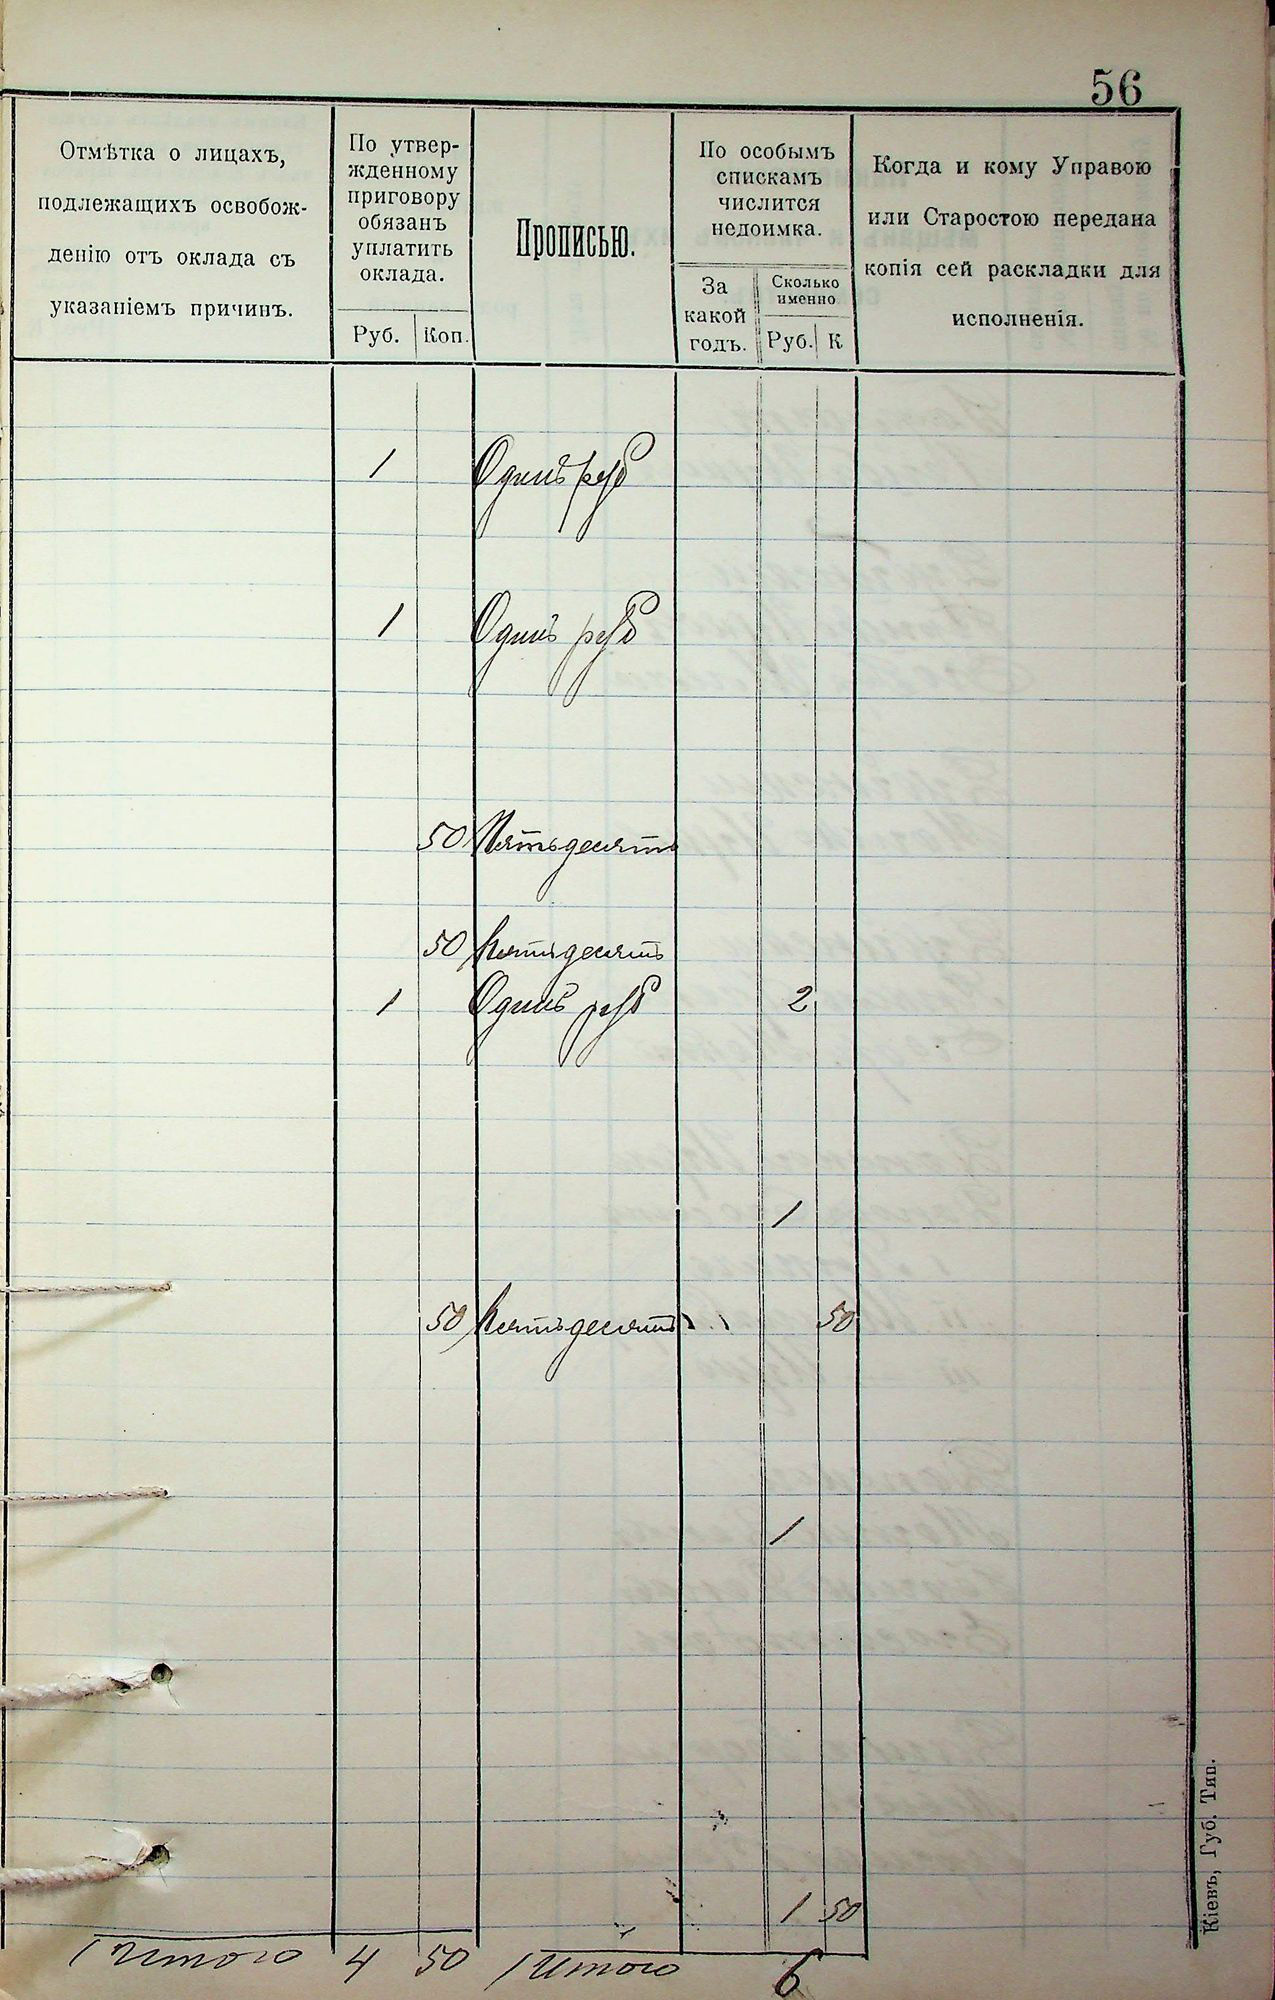 56
Отмѣтка о лицахъ,
подлежащихъ освобож-
денію отъ оклада съ
указаніемъ причинъ.
По утвер-
жденному
приговору
обязанъ
уплатить
оклада.
Руб. Коп.
Прописью.
По особымъ
спискамъ
числится
недоимка.
За
какой
годъ.
Сколько
именно
Руб. К
Когда и кому Управою
или Старостою передана
копія сей раскладки для
исполненія.
1 Одинъ руб
1 Одинъ руб
50 Пятьдесятъ
50 Пятьдесятъ
1 Одинъ руб 2
1
50 Пятьдесятъ 50
1
1 50
Итого 4 50 Итого 6
Кіевъ, Губ. Тип.